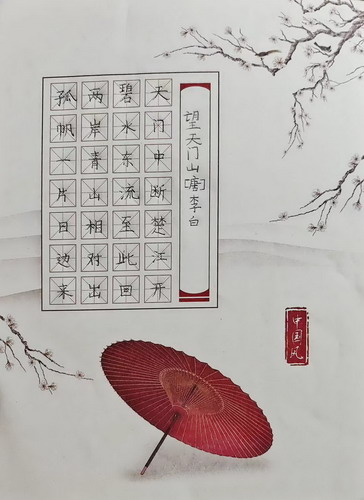 望天门山[唐]李白
天门中断楚江开
碧水东流至此回
两岸青山相对出
孤帆一片日边来
中国风